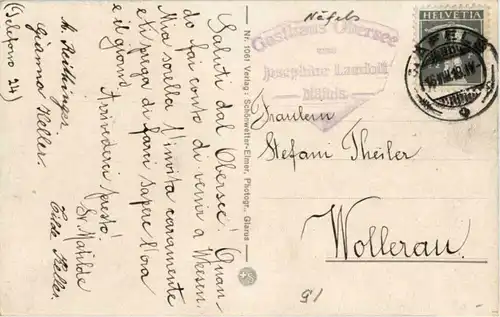 Saluti dal Obersee! Quan
do fai conto di venir a Weesen.
Mia sorella l'invita caramente
e ti prega di farci sapere l'ora
e il giorno.
Arrivederci presto!
Mathilde
Hilda Keller.
M. Reithinger.
Gianna Keller.
(Telefono 24)
Nr. 1061 Verlag: Schönwetter-Elmer, Photogr., Glarus
Näfels
Gasthaus Obersee
von
Josephine Landolt
Näfels
HELVETIA
NÄFELS
Fräulein
Stefani Theiler
Wollerau.
91